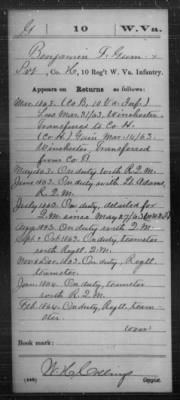 G | 10 | W. Va.
Benjamin F. Gunn
Pvt, Co. H, 10 Reg't W. Va. Infantry.
Appears on Returns as follows:
Mar. 1863. (Co. B, 10 Va. Inf.)
Loss Mar. 31/63, Winchester
Transferred to Co. H.
(Co. H) Gain Mar. 14/63
Winchester, Transferred
from Co. B
May 1863. On duty with R.Q.M.
June 1863. On duty with Lt. Adams,
R.Q.M.
July 1863. On duty, detailed for
Q.M. since May 27/63
Aug. 1863. On duty with Q.M.
Sept. & Oct. 1863. On duty, teamster
with Regtl. Q.M.
Nov. & Dec. 1863. On duty, Regtl.
teamster.
Jan. 1864. On duty, teamster
with R.Q.M.
Feb. 1864. On duty, Regtl. team-
ster.
over
Book mark:
(546)
Copyist.